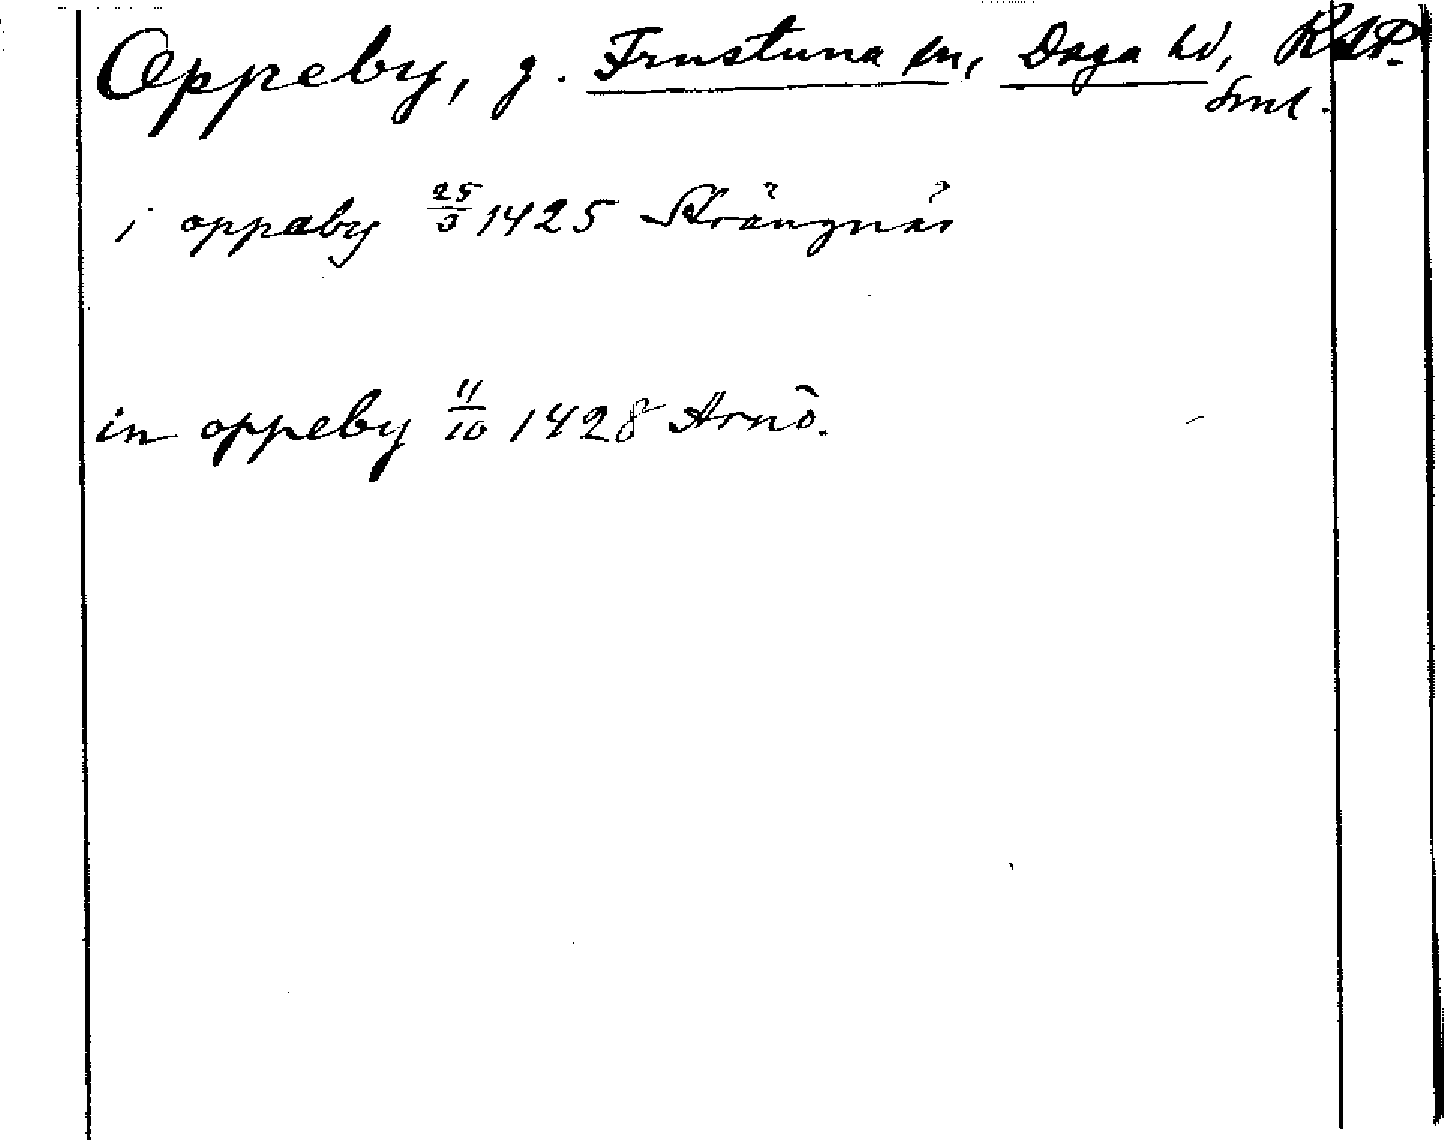 Oppeby, g. Frustuna sn, Daga hd, RAP.
Sml.
i oppaby 25/5 1425 Strängnäs
in oppeby 11/10 1428 Arnö.